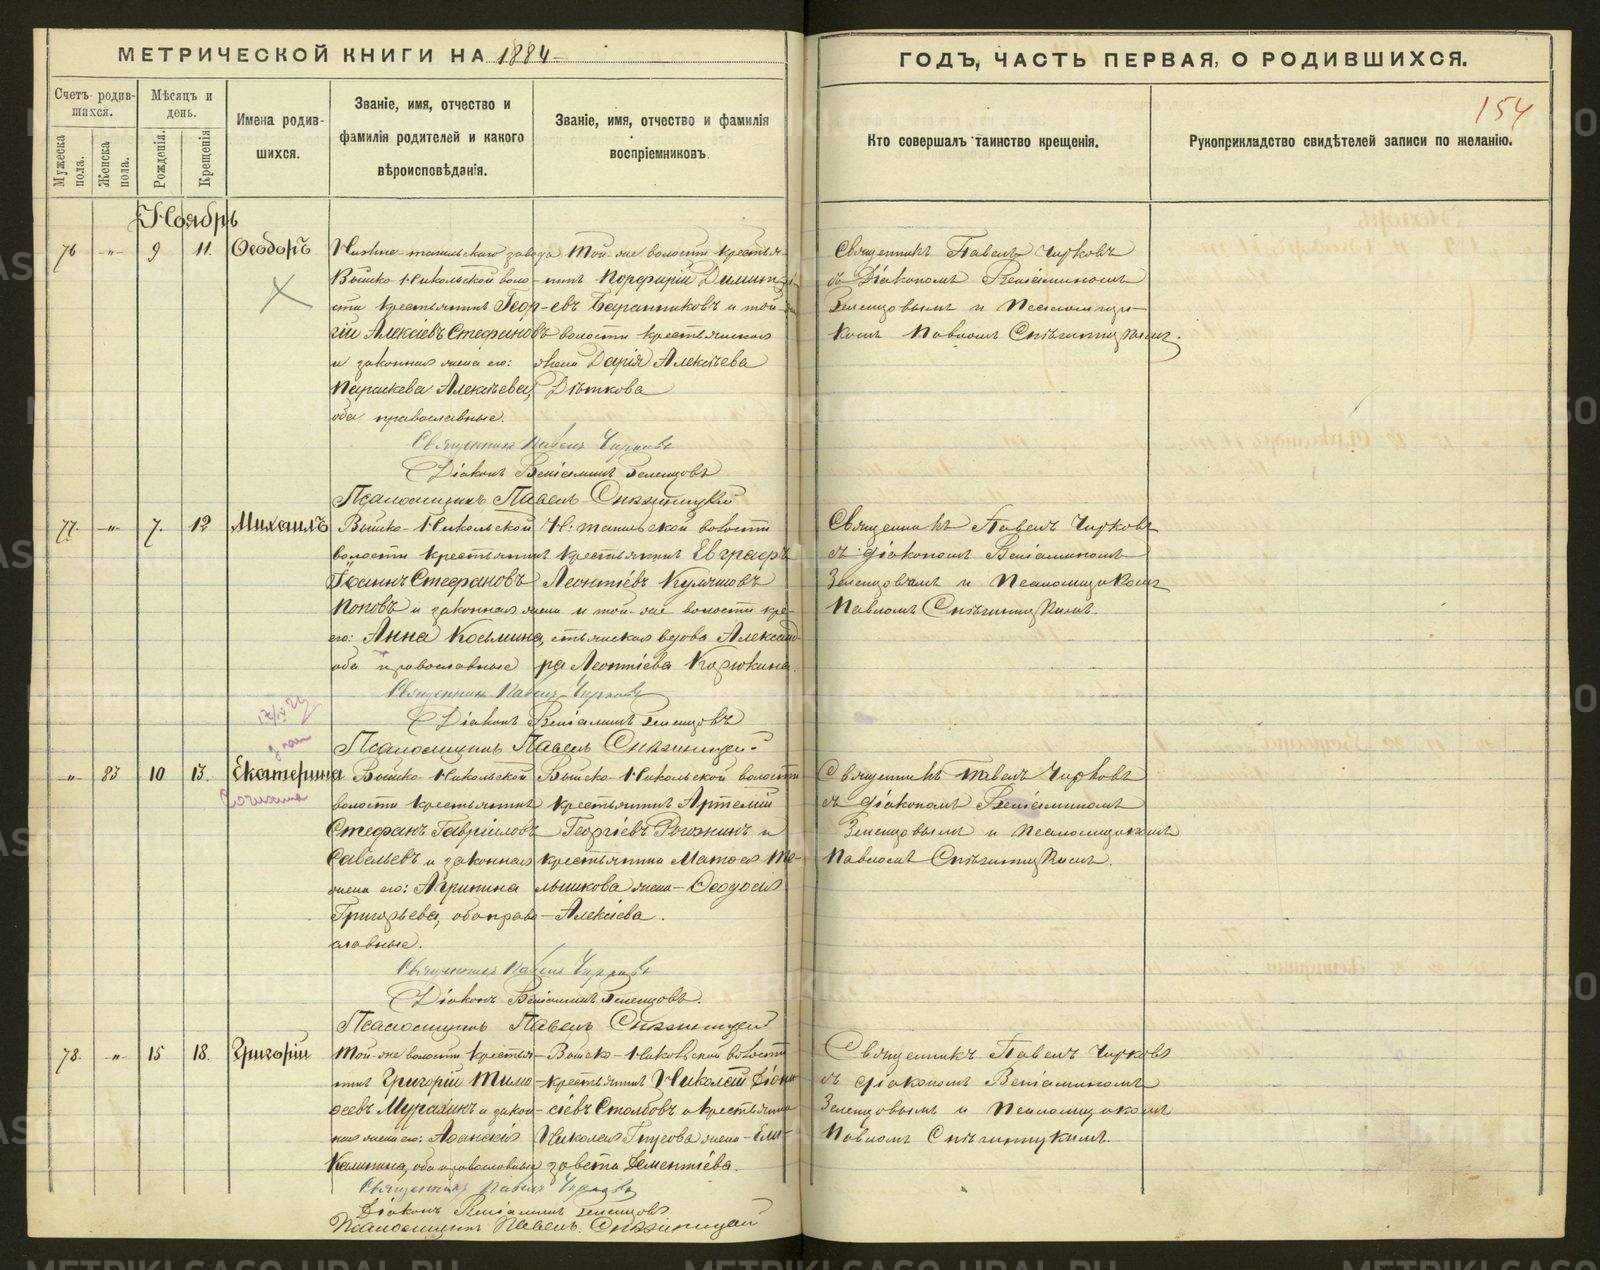 МЕТРИЧЕСКОЙ КНИГИ НА 1884
ГОДЪ, ЧАСТЬ ПЕРВАЯ, О РОДИВШИХСЯ.
154
Счетъ родив-
шихся.
Мужеска
пола.
Женска
пола.
Мѣсяцъ и
день.
Рожденія.
Крещенія
Имена родив-
шихся.
Званіе, имя, отчество и
фамилія родителей и какого
вѣроисповѣданія.
Званіе, имя, отчество и фамилія
воспріемниковъ.
Кто совершалъ таинство крещенія.
Рукоприкладство свидѣтелей записи по желанію.
Ноябрь
76 -„- 9 11. Ѳеодоръ
Нижне-тагильскаго завода
Выйско-Николькой воло-
сти крестьянинъ Геор-
гій Алексѣевъ Стефановъ
и законная жена его:
Параскева Алексѣева,
оба православные.
Той-же волости крестья-
нинъ Порфирій Димитрі-
евъ Баранниковъ и той-
волости крестьянская
жена Дарія Алексѣева
Дѣткова
Священникъ Павелъ Чирковъ
съ Діакономъ Веніаминомъ
Зеленцовымъ и Псаломщи-
комъ Павломъ Снѣжницкимъ.
Священникъ Павелъ Чирковъ
Діаконъ Веніаминъ Зеленцовъ
Псаломщикъ Павелъ Снѣжницкій
77. -„- 7. 12 Михаилъ
Выйско-Никольской
волости крестьянинъ
Іоаннъ Стефановъ
Поповъ и законная жена
его: Анна Косьмина,
оба православные
Н-тагильской волости
крестьянинъ Евграфъ
Леонтіевъ
и той-же волости кре-
стьянская вдова Александ-
ра Леонтіева Корюкина.
Священникъ Павелъ Чирковъ
съ діакономъ Веніаминомъ
Зеленцовымъ и Псаломщикомъ
Павломъ Снѣжницкимъ.
Священникъ Павелъ Чирковъ
Діаконъ Веніаминъ Зеленцовъ
Псаломщикъ Павелъ Снѣжницкій
-„- 83 10 13. Екатерина
Выйско-Никольской
волости крестьянинъ
Стефанъ Гавріиловъ
Савельевъ и законная
жена его: Агрипина
Григорьева, оба право-
славные.
Выйско-Никольской волости
крестьянинъ Артемій
Георгіевъ Рогожинъ и
крестьянина Матѳея Ме-
льникова жена Ѳеодосія
Алексѣева.
Священникъ Павелъ Чирковъ
съ діакономъ Веніаминомъ
Зеленцовымъ и псаломщикомъ
Павломъ Снѣжницкимъ.
Священникъ Павелъ Чирковъ
Діаконъ Веніаминъ Зеленцовъ.
Псаломщикъ Павелъ Снѣжницкій
78. -„- 15 18. Григорій
Той-же волости крестья-
нинъ Григорій Тимо-
ѳеевъ Мурзинъ и закон-
ная жена его: Аѳанасія
Калинина, оба православные
Выйско-Никольской волости
крестьянинъ Николай Діони-
сіевъ Столбовъ и крестьянина
Николая Гусева жена Ели-
завета Дементіева.
Священникъ Павелъ Чирковъ
съ діакономъ Веніаминомъ
Зеленцовымъ и Псаломщикомъ
Павломъ Снѣжницкимъ.
Священникъ Павелъ Чирковъ
Діаконъ Веніаминъ Зеленцовъ
Псаломщикъ Павелъ Снѣжницкій
METRIKI.GASO-URAL.RU